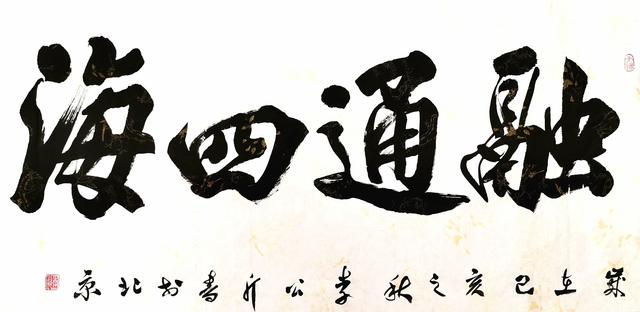 融通四海
歲在己亥之秋李公書於北京